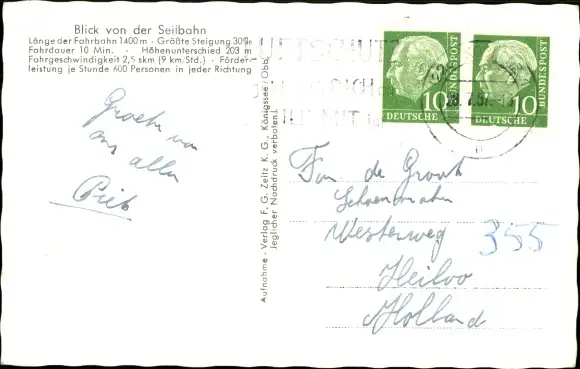 Blick von der Seilbahn
Länge der Fahrbahn 1400 m · Größte Steigung 30%
Fahrdauer 10 Min. · Höhenunterschied 203 m
Fahrgeschwindigkeit 2,5 skm (9 km/Std.) · Förder-
leistung je Stunde 600 Personen in jeder Richtung
Groeten van
ons allen
Piet
Aufnahme - Verlag F. G. Zeitz K. G., Königssee/Obb.
Jeglicher Nachdruck verboten!
10
DEUTSCHE
BUNDESPOST
10
DEUTSCHE
BUNDESPOST
28.7.57
Fam de Groot
Schoenmaker
Westerweg
355
Heiloo
Holland